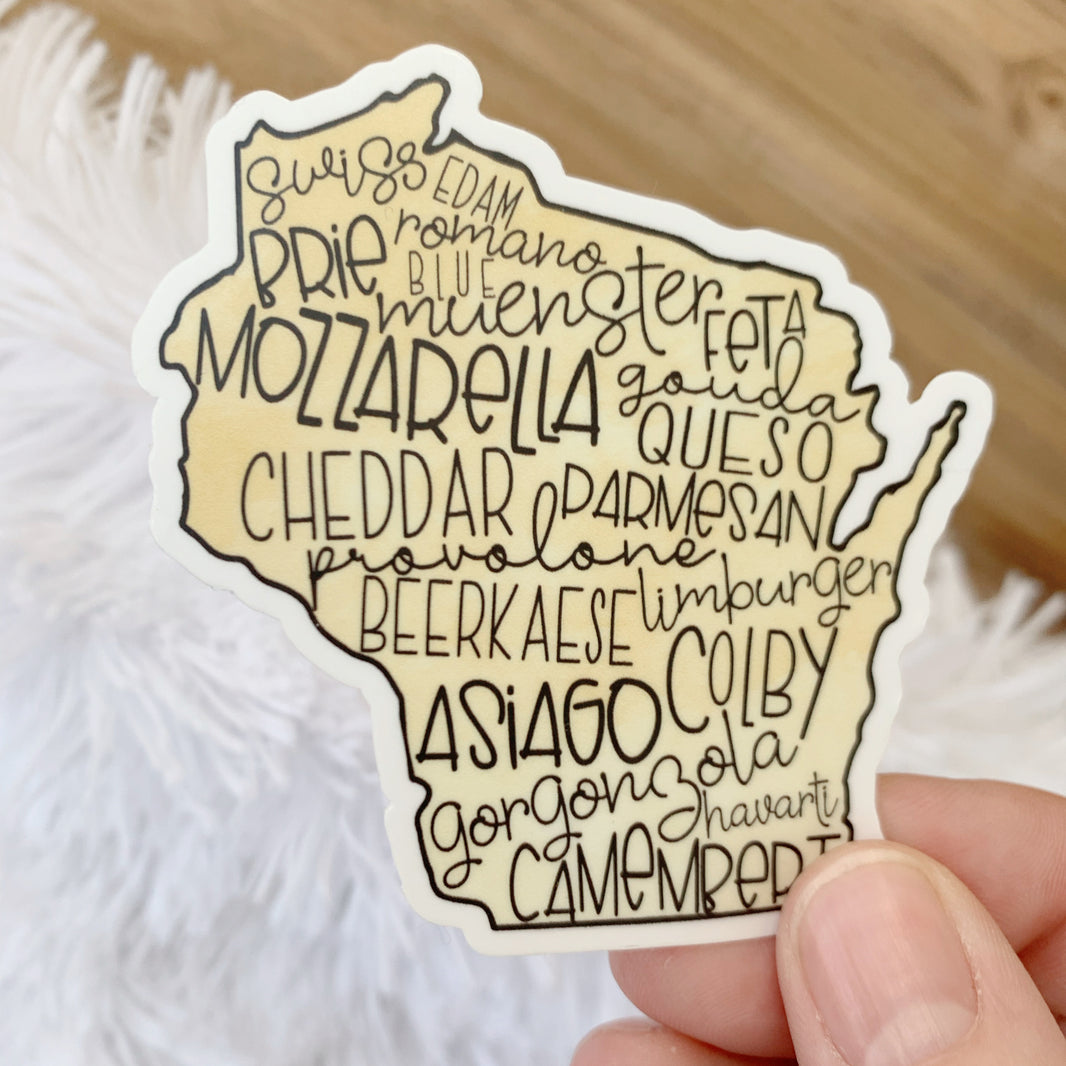 swiss EDAM
BRie romano
BLUE
muenster FeTA
MOZZAReLLA gouda
QUESO
CHEDDAR PARMeSAN
provolone
BEERKAESE limburger
ASiAGO COLBY
gorgonzola
havarti
CAMeMBeRT